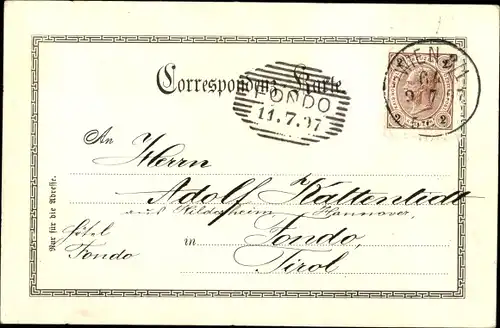 Correspondenz-Karte
FONDO
11.7.97
WIEN
2
2
An
Herrn
Adolf Kattentidt
aus Hildesheim, Hannover,
Hôtel
Fondo
in
Fondo,
Tirol
Nur für die Adresse.